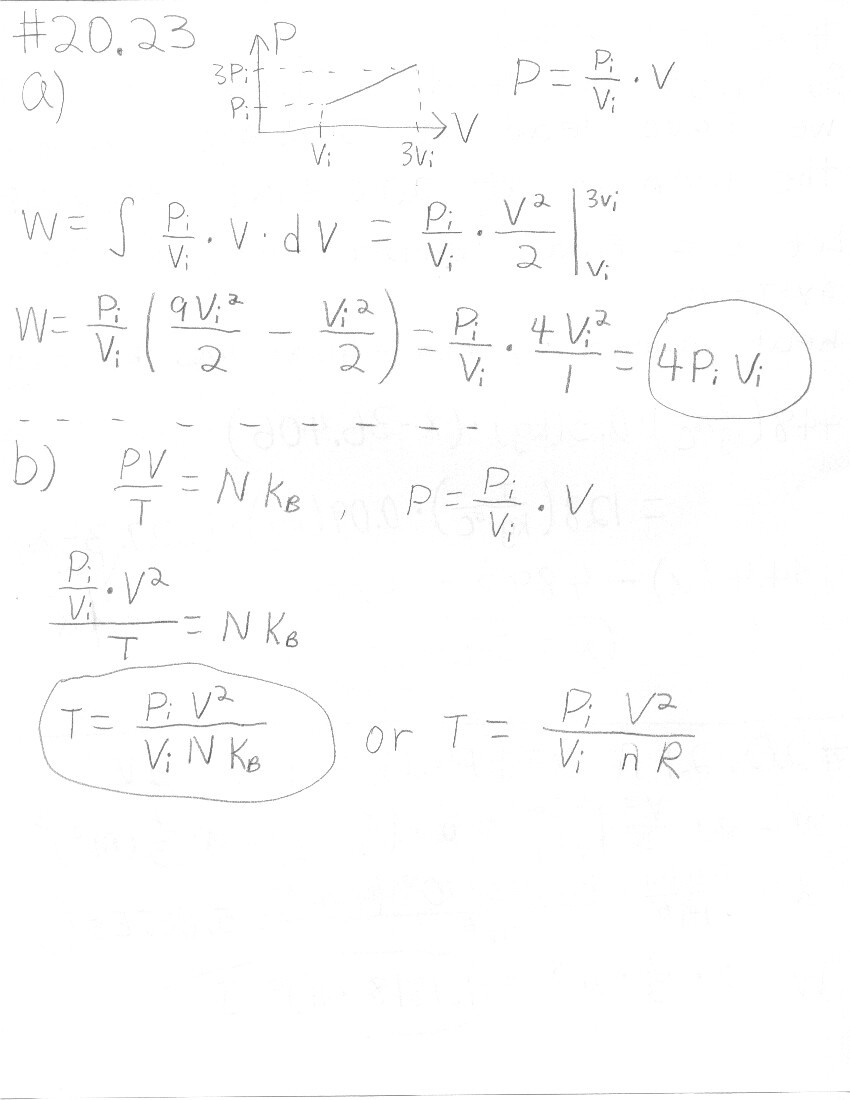 #20.23
a)
P
3Pᵢ
Pᵢ
Vᵢ 3Vᵢ
V
P = Pᵢ/Vᵢ · V
W = ∫ Pᵢ/Vᵢ · V · dV = Pᵢ/Vᵢ · V²/2 |_{Vᵢ}^{3Vᵢ}
W = Pᵢ/Vᵢ (9Vᵢ²/2 − Vᵢ²/2) = Pᵢ/Vᵢ · 4Vᵢ²/1 = 4PᵢVᵢ
b) PV/T = N K_B , P = Pᵢ/Vᵢ · V
(Pᵢ/Vᵢ · V²)/T = N K_B
T = Pᵢ V²/(Vᵢ N K_B) or T = Pᵢ V²/(Vᵢ n R)